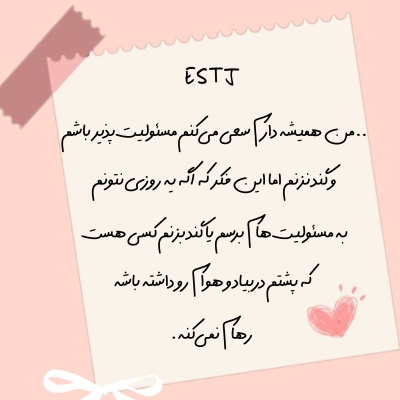 ESTJ
..من همیشه دارم سعی می‌کنم مسئولیت‌پذیر باشم
و گند نزنم اما این فکر که اگه یه روزی نتونم
به مسئولیت‌هام برسم یا گند بزنم کسی هست
که پشتم دربیاد و هوام رو داشته باشه
رهام نمی‌کنه.